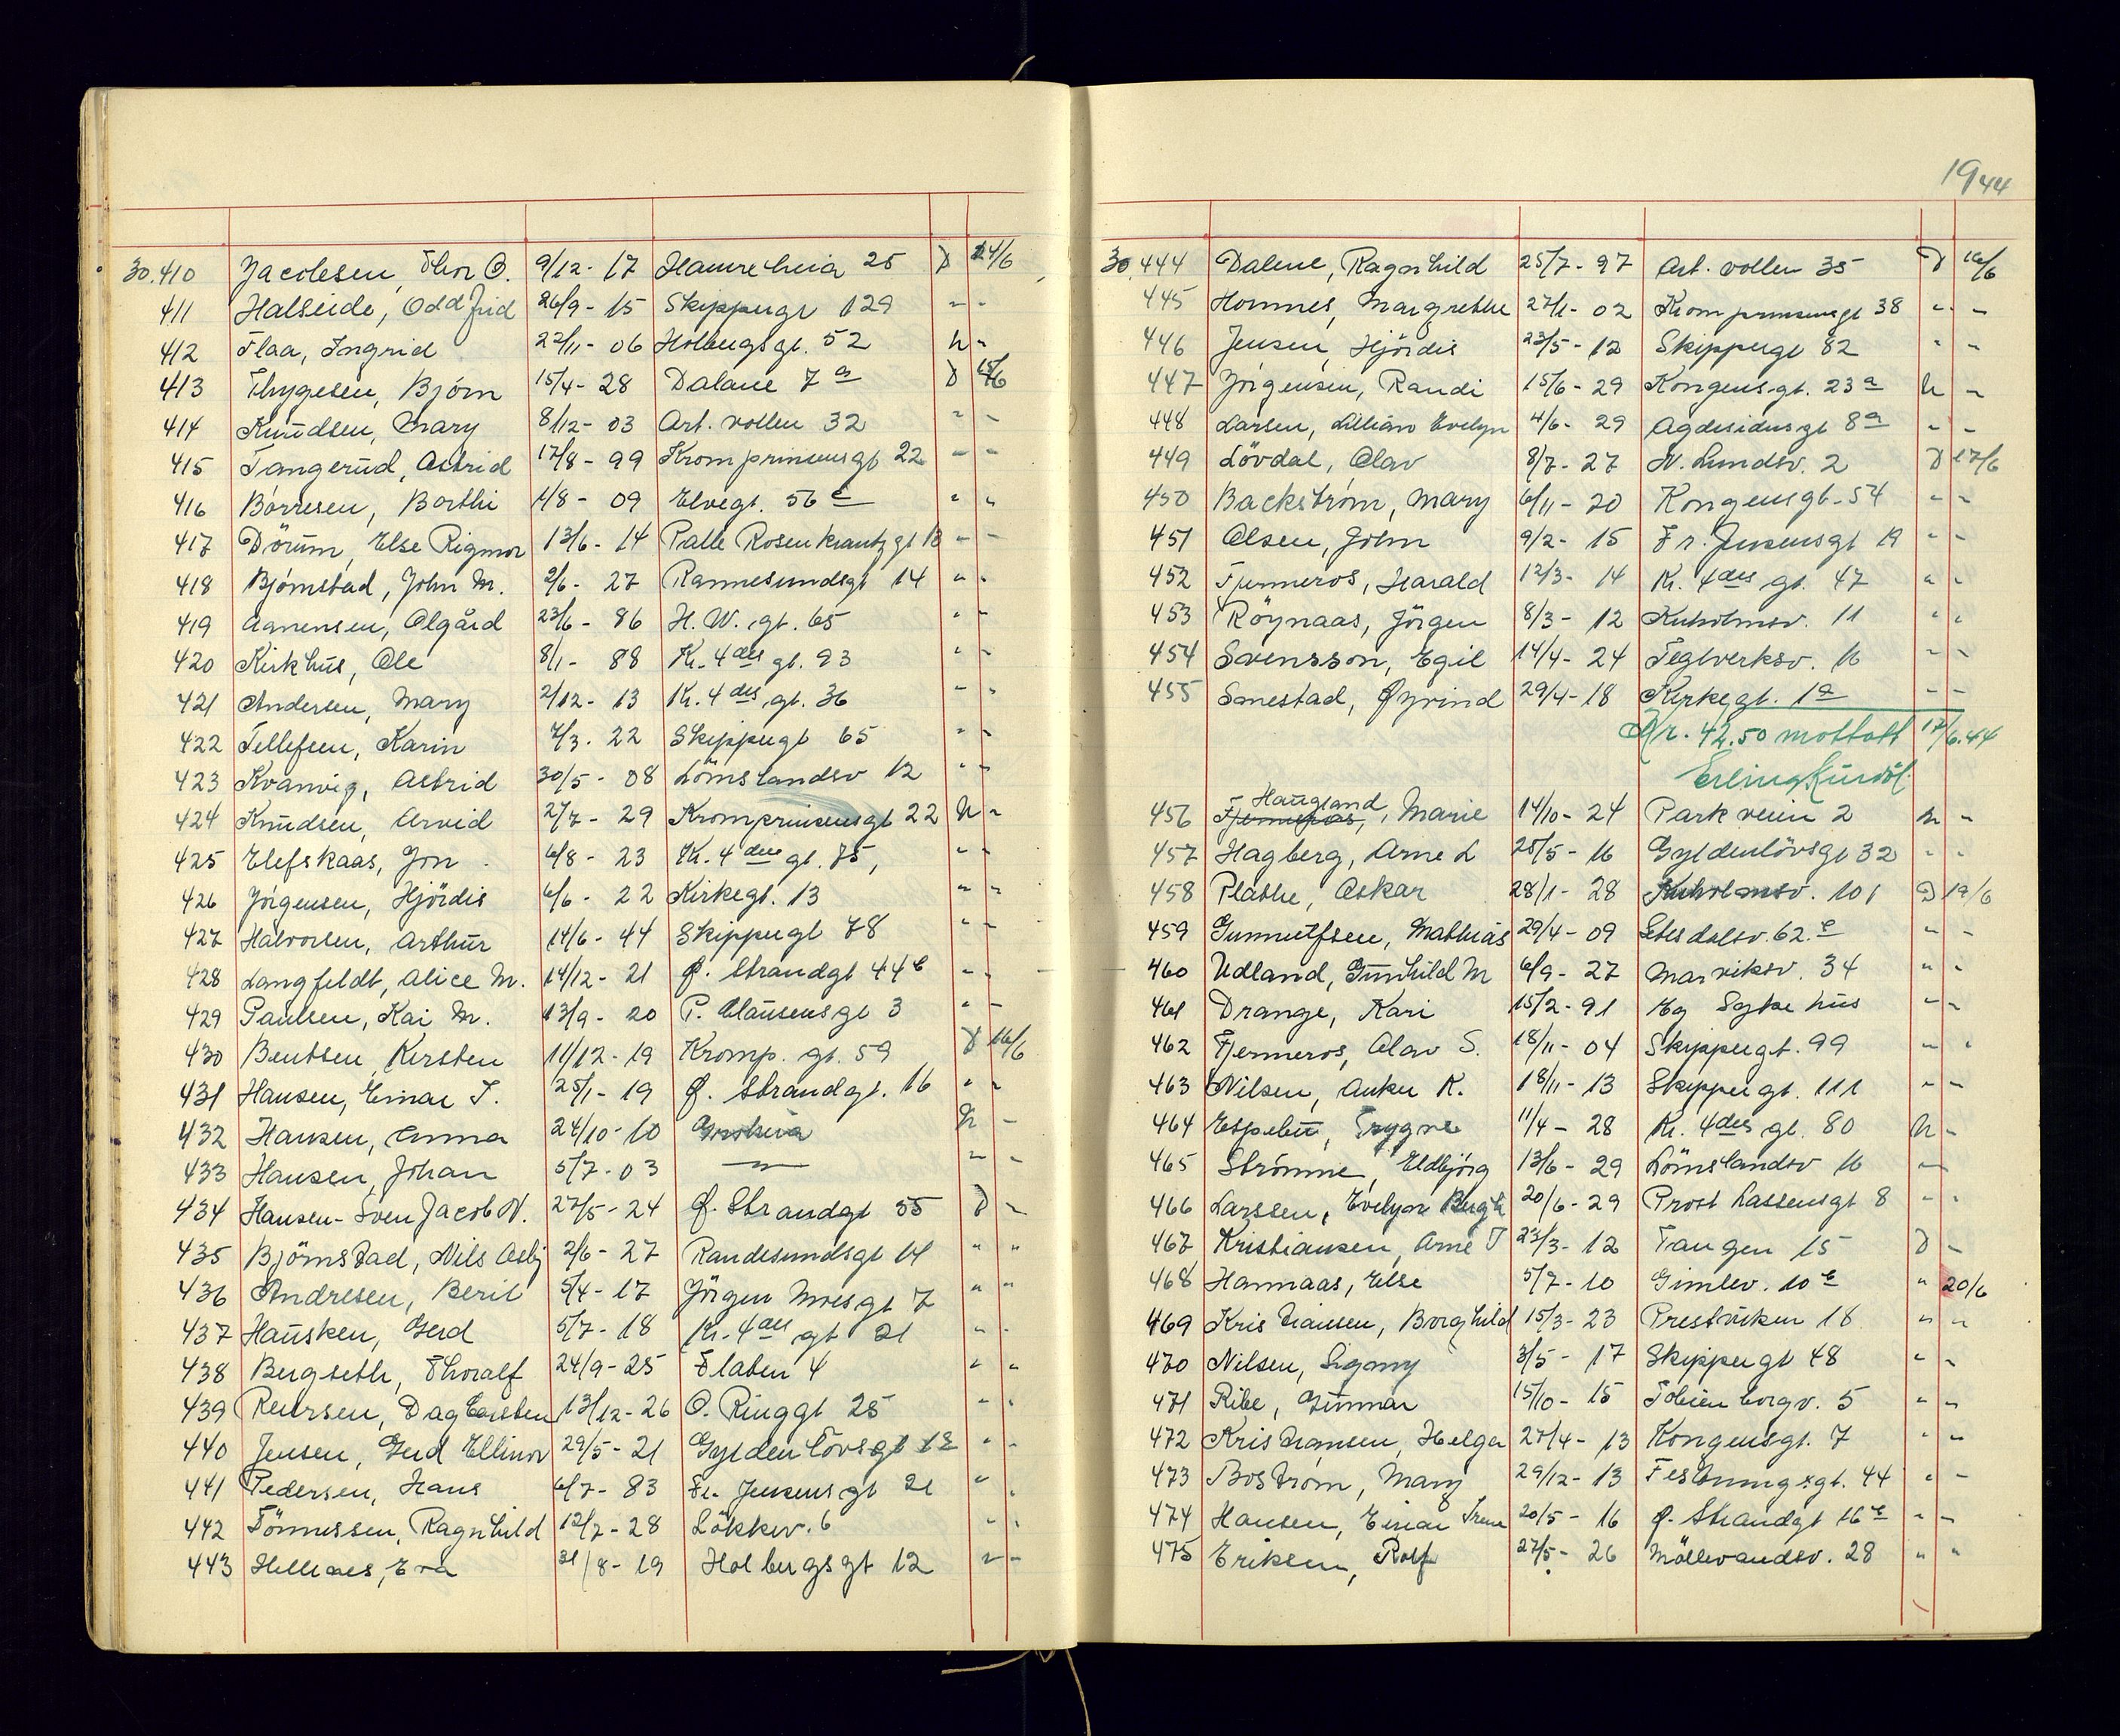 30.410 Jacobsen, Thor O. 9/12-17 Hamreheia 25 D 14/6
411 Halseide, Oddfrid 26/9-15 Skippergt 129 " -
412 Flaa, Ingrid 22/11-06 Holbergsgt. 52 N -
413 Thygesen, Bjørn 15/4-28 Dalane 7a D 15/6
414 Knudsen, Mary 8/12-03 Art. vollen 32 " -
415 Tangerud, Astrid 17/8-99 Kronprinsensgt 22 - -
416 Børresen, Borthi 1/8-09 Elvegt. 56c " "
417 Dörum, Else Rigmor 13/6-14 Palle Rosenkrantzgt 13 - -
418 Bjørnstad, John M. 2/6-27 Rannesundsgt 14 " "
419 Aanensen, Olgård 23/6-86 H. W. gt. 65 " -
420 Kirkhus, Ole 8/1-88 Kr. 4des gt. 93 " -
421 Andersen, Mary 2/12-13 Kr. 4des gt. 36 - "
422 Tellefsen, Karin 7/3-22 Skippergt 65 " -
423 Kvanvig, Astrid 30/5-08 Lömslandsv 12 " -
424 Knudsen, Arvid 27/7-29 Kronprinsensgt 22 N -
425 Elefskaas, Jon 6/8-23 Kr. 4des gt. 75, " "
426 Jörgensen, Hjördis 6/6-22 Kirkegt. 13 " "
427 Halvorsen, Arthur 14/6-44 Skippergt 78 " -
428 Langfeldt, Alice M. 14/12-21 Ø. Strandgt 44c - -
429 Paulsen, Kai M. 13/9-20 P. Clausensgt 3 " -
430 Bentsen, Kirsten 11/12-19 Kronp. gt. 59 D 16/6
431 Hansen, Einar T. 25/1-19 Ø. Strandgt. 16 " "
432 Hansen, Anna 24/10-10 N -
433 Hansen, Johan 5/7-03 — " -
434 Hansen-Sven Jacob N. 27/5-24 Ø. Strandgt 55 D -
435 Björnstad, Nils Asbj 2/6-27 Randesundsgt 14 " "
436 Andresen, Berit 5/4-17 Jörgen Moesgt 7 " "
437 Hausken, Gerd 5/7-18 Kr. 4des gt 21 " -
438 Bergseth, Thoralf 24/9-25 Flaten 4 " "
439 Reiersen, Dag Carsten 13/12-26 O. Ringgt 25 " -
440 Jensen, Gerd Ellinor 29/5-21 Gyldenlövsgt 12 " -
441 Pedersen, Hans 6/7-83 Fr. Jensensgt 21 " .
442 Tönnessen, Ragnhild 12/7-28 Lökkev. 6 " "
443 Hellenes, Eva 31/8-19 Holbergsgt 12 " -
1944
30.444 Dalene, Ragnhild 25/7-97 Art. vollen 35 D 16/6
445 Hommes, Margrethe 27/1-02 Kronprinsensgt 38 " -
446 Jensen, Hjördis 23/5-12 Skippergt 82 " -
447 Jörgensen, Randi 15/6-29 Kongensgt. 23a N -
448 Larsen, Lillian Evelyn 4/6-29 Agdesidensgt 8a - -
449 Lövdal, Olav 8/7-27 N. Lundsv. 2 D 17/6
450 Backström, Mary 6/11-20 Kongensgt. 54 " -
451 Olsen, John 9/2-15 Fr. Jensensgt 19 " -
452 Fjermeros, Harald 12/3-14 Kr. 4des gt. 47 " "
453 Röynaas, Jörgen 8/3-12 Kuholmsv. 11 " "
454 Svensson, Egil 14/4-24 Teglverksv. 16 - -
455 Smestad, Øyvind 29/4-18 Kirkegt. 1a - -
Kr. 42.50 mottatt 17/6.44
Erling
456 Fjermeros, Haugland, Marie 14/10-24 Parkveien 2 N -
457 Hagberg, Arne L 25/5-16 Gyldenlövsgt 32 " "
458 Plathe, Oskar 28/1-28 Kuholmsv. 101 D 19/6
459 Gunnulfsen, Mathias 29/4-09 Setesdalsv. 62.c " -
460 Udland, Gunhild M 6/9-27 Marviksv. 34 " "
461 Drange, Kari 15/2-91 Eg Sykehus " -
462 Fjermeros, Olav S. 18/11-04 Skippergt. 99 " "
463 Nilsen, Anker K. 18/11-13 Skippergt. 111 " -
464 Espeli, Trygve 11/4-28 Kr. 4des gt. 80 N -
465 Strömme, Eldbjörg 13/6-29 Lömslandsv 16 " -
466 Larssen, Evelyn 20/6-29 Prost Lassensgt 8 " -
467 Kristiansen, Arne T 23/3-12 Tangen 15 D -
468 Hannaas, Else 5/7-10 Gimlev. 10c " 20/6
469 Kristiansen, Borghild 15/3-23 Prestviken 18 " "
470 Nilsen, Signy 3/5-17 Skippergt 48 " "
471 Ribe, Gunnar 15/10-15 Tobienborgv. 5 " "
472 Kristiansen, Helga 27/4-13 Kongensgt. 7 " "
473 Boström, Mary 29/12-13 Festningsgt. 44 " -
474 Hansen, Einar Irene 20/5-16 Ø. Strandgt 16c " -
475 Eriksen, Rolf 27/5-26 Möllevandsv. 28 " "